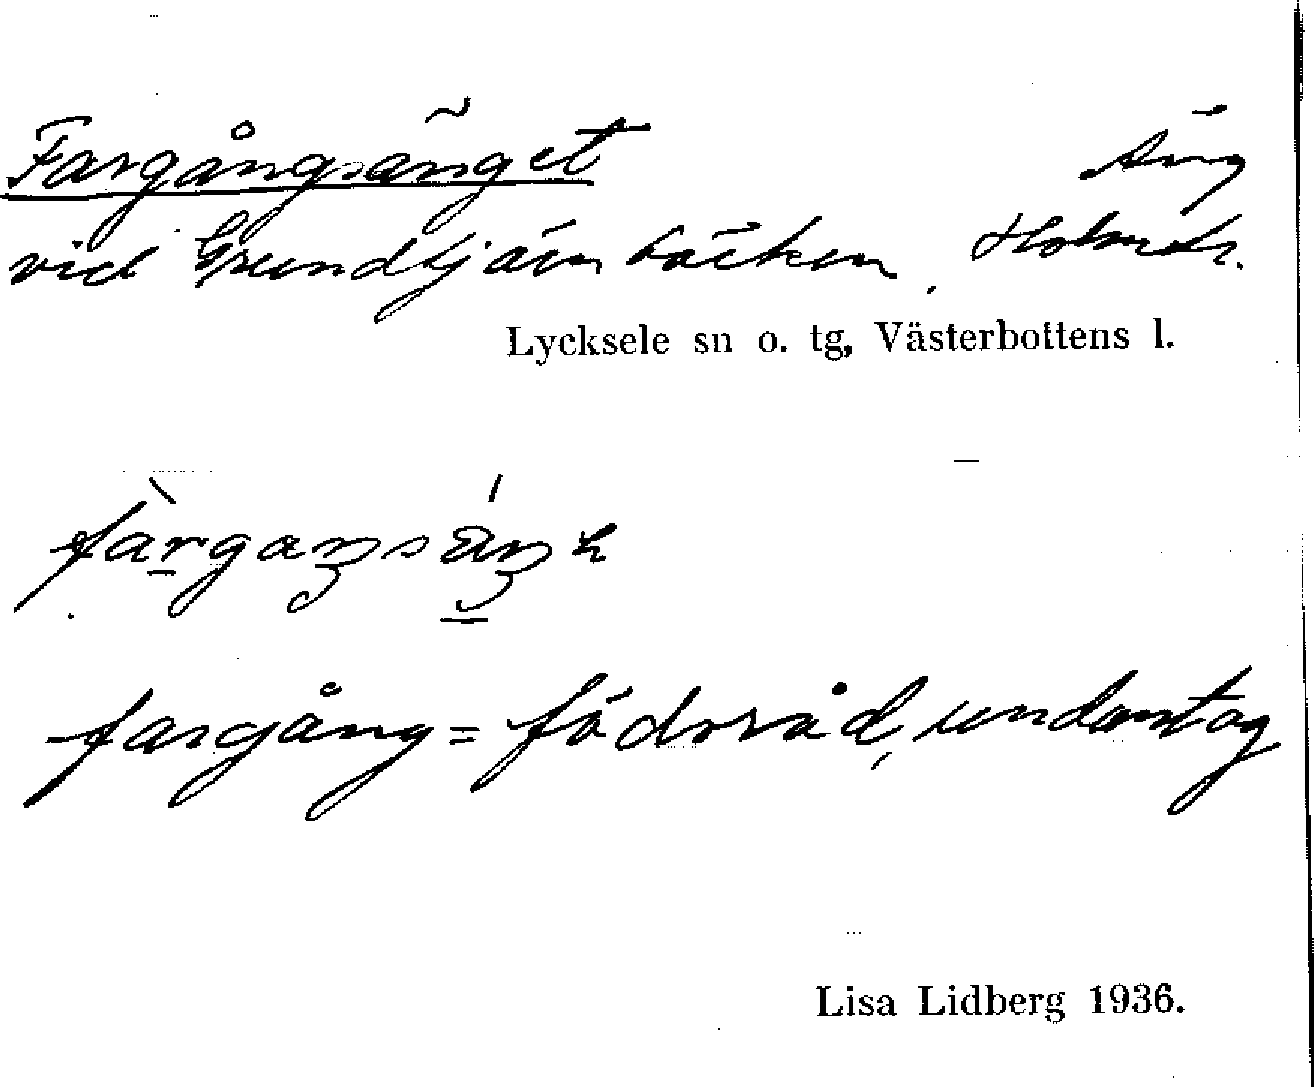 Fargångsänget Äng
vid Grundtjärnbäcken, Holmtr.
Lycksele sn o. tg, Västerbottens l.
fàrgaŋsáŋk
fargång = födoråd, undantag
Lisa Lidberg 1936.